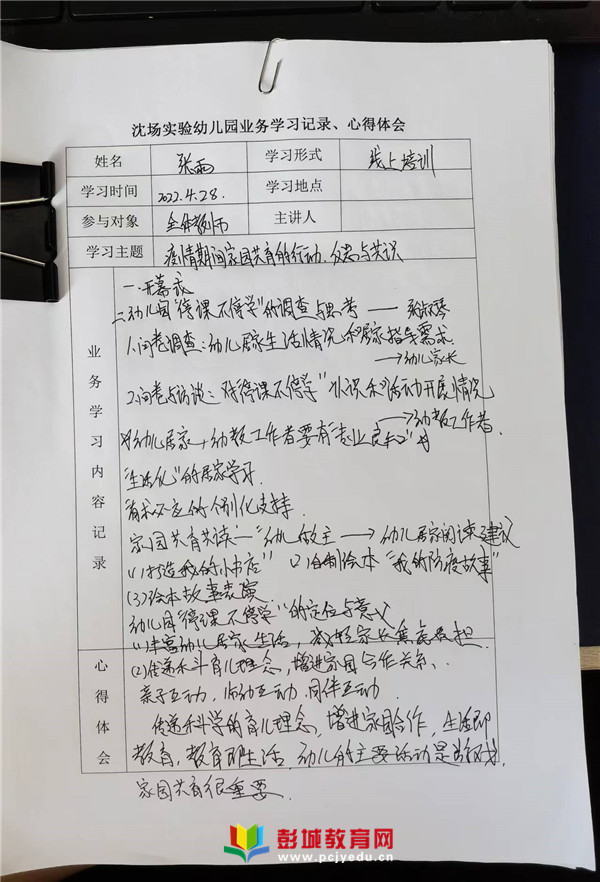 沈场实验幼儿园业务学习记录、心得体会
姓名 张雨 学习形式 线上培训
学习时间 2022.4.28. 学习地点
参与对象 全体教师 主讲人
学习主题 疫情期间家园共育的行动、反思与共识
业务学习内容记录
一.开幕式
二.幼儿园"停课不停学"的调查与思考 ——
1.问卷调查:幼儿居家生活情况和居家指导需求
→幼儿家长
2.问卷与访谈:对"停课不停学"认识和活动开展情况
→幼教工作者.
对幼儿居家,幼教工作者要有"专业良知"
"生活化"的居家学习
"有求必应"的个别化支持
家园共育共读—"幼儿做主 → 幼儿居家阅读建议
(1)打造我的小书店" (2)自制绘本"我的防疫故事"
(3)绘本故事表演
幼儿园"停课不停学"的定位与意义
(1)丰富幼儿居家生活,减轻家长焦虑负担.
心得体会
(2)传递科学育儿理念,增进家园合作关系、
亲子互动,师幼互动,同伴互动.
传递科学的育儿理念,增进家园合作,生活即
教育,教育即生活.幼儿的主要活动是游戏,
家园共育很重要.
彭城教育网
www.pcjyedu.cn